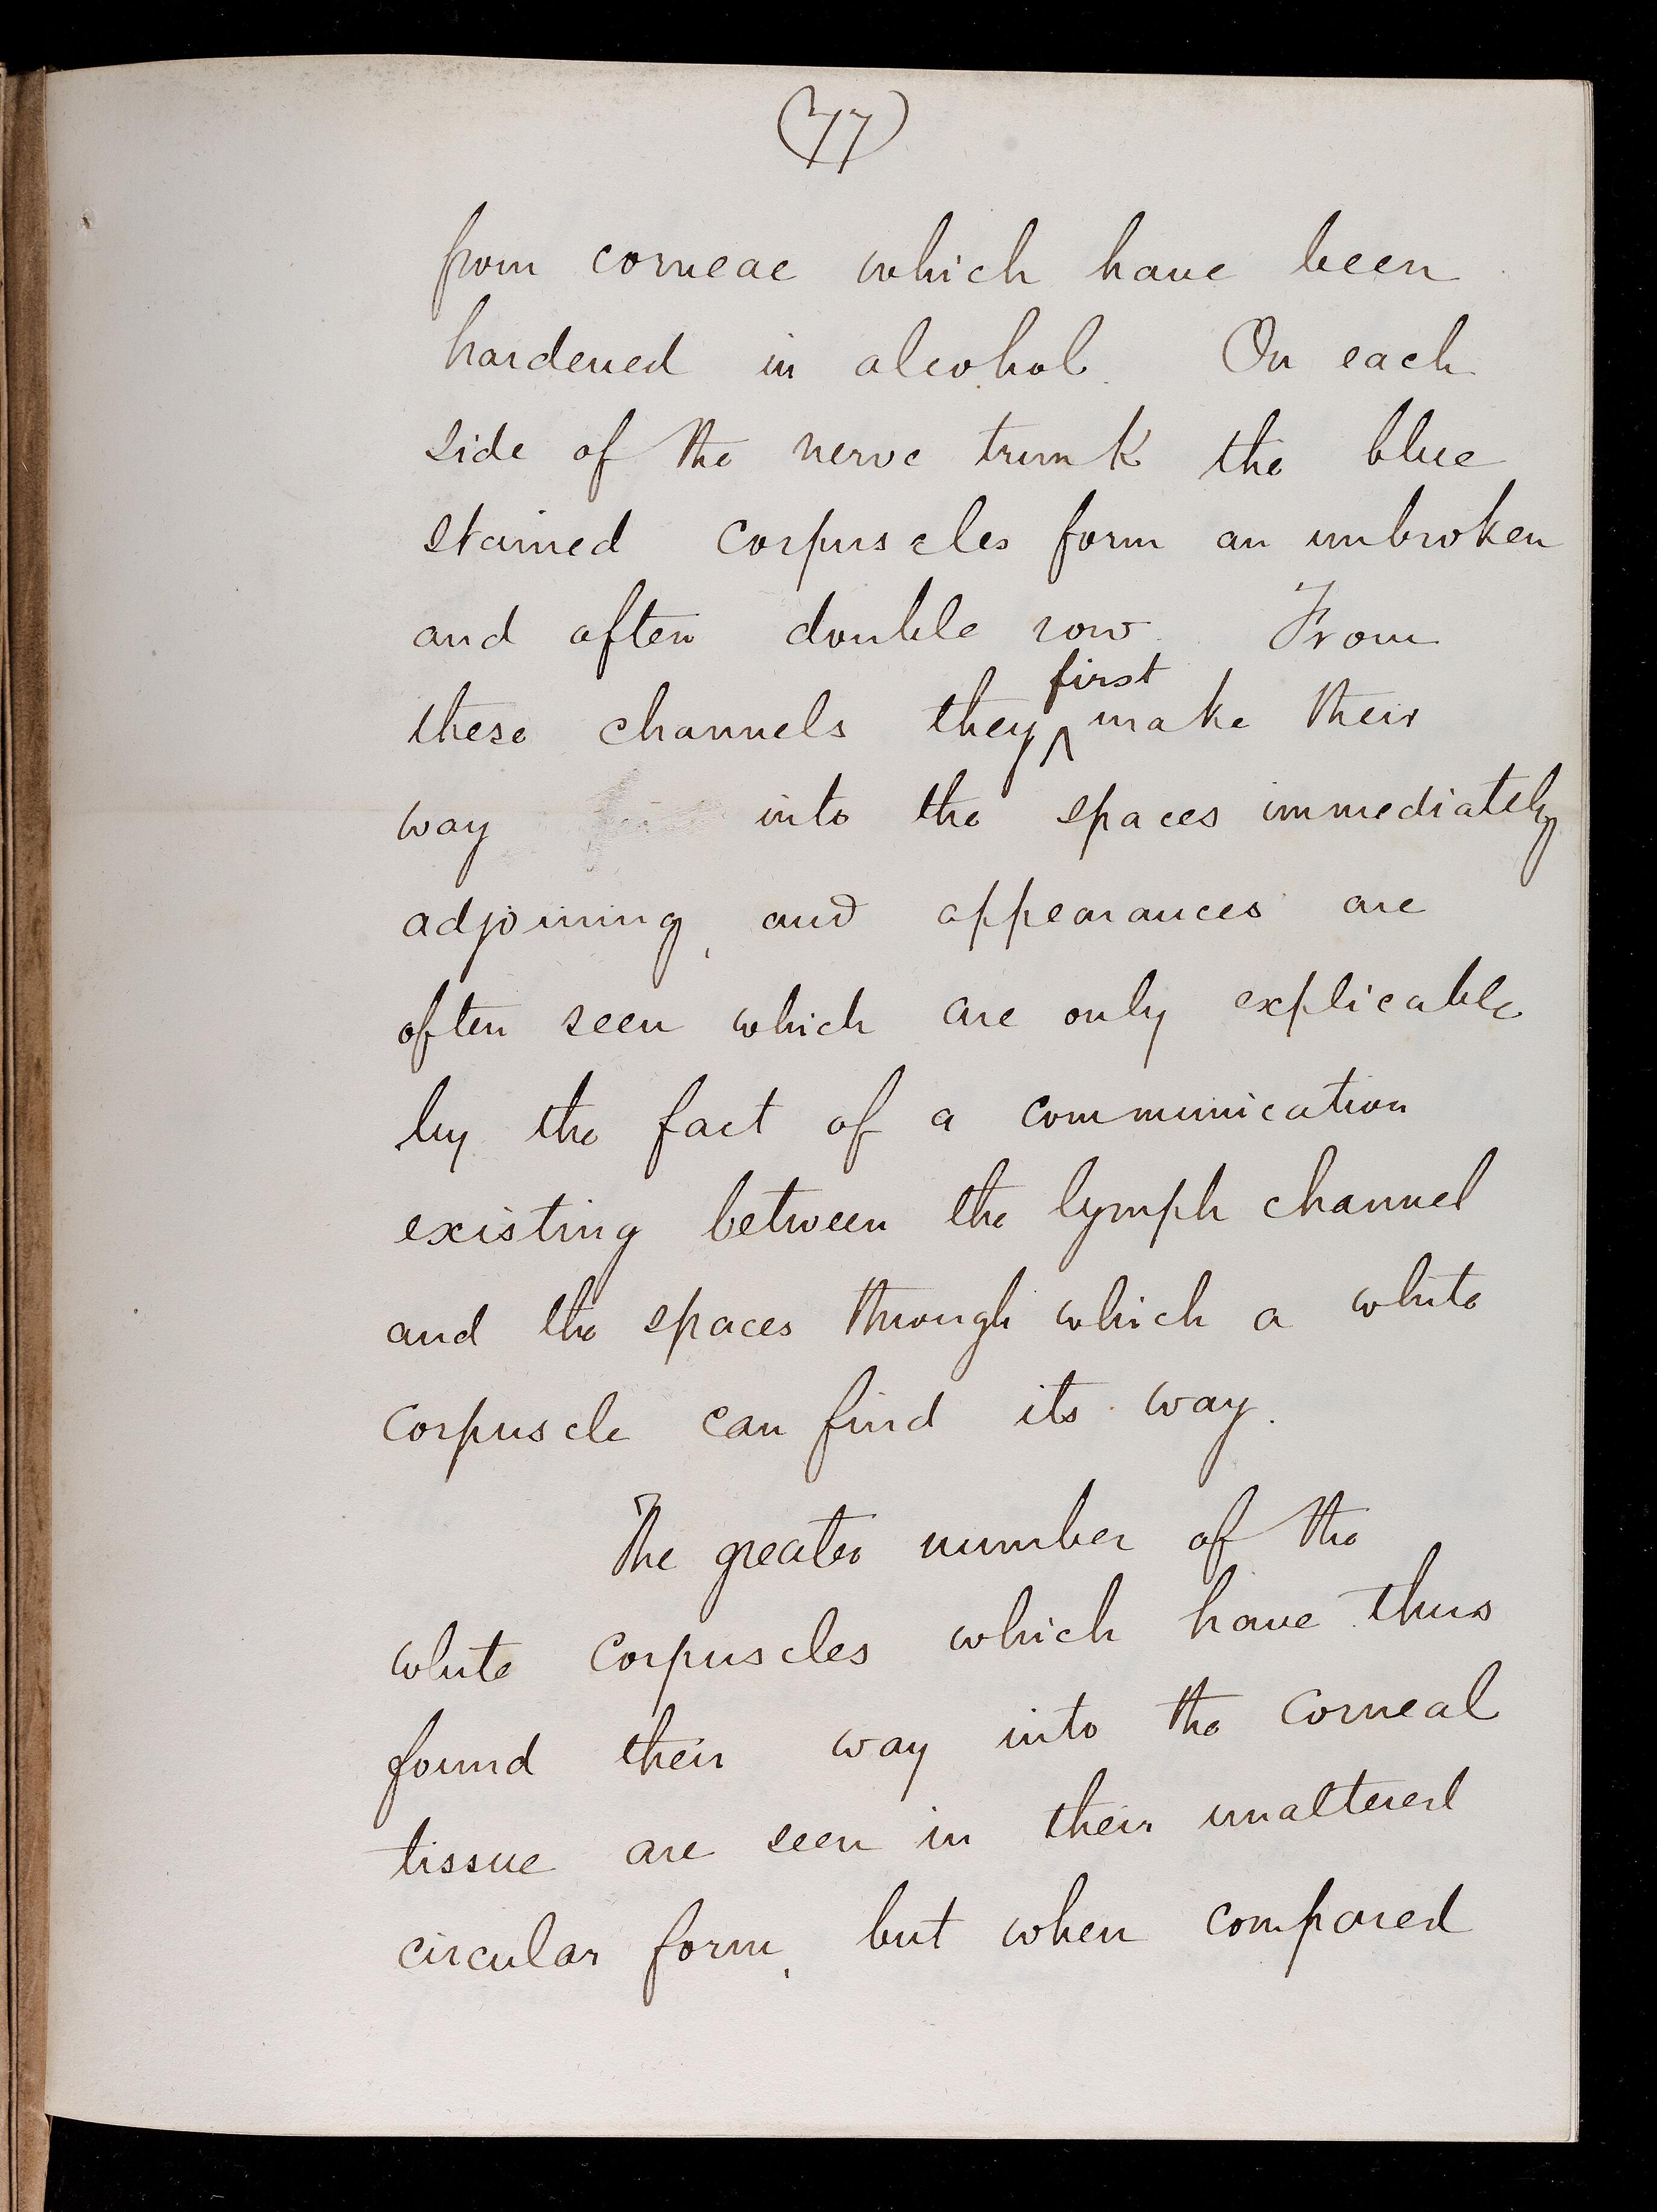 (77)
from corneae which have been
hardened in alcohol. On each
side of the nerve trunk the blue
stained corpuscles form an unbroken
and often double row. From
first
these channels they ^ make their
way into the spaces immediately
adjoining, and appearances are
often seen which are only explicable
by the fact of a communication
existing between the lymph channel
and the spaces through which a white
corpuscle can find its way.
The greater number of the
white corpuscles which have thus
found their way into the corneal
tissue are seen in their unaltered
circular form, but when compared